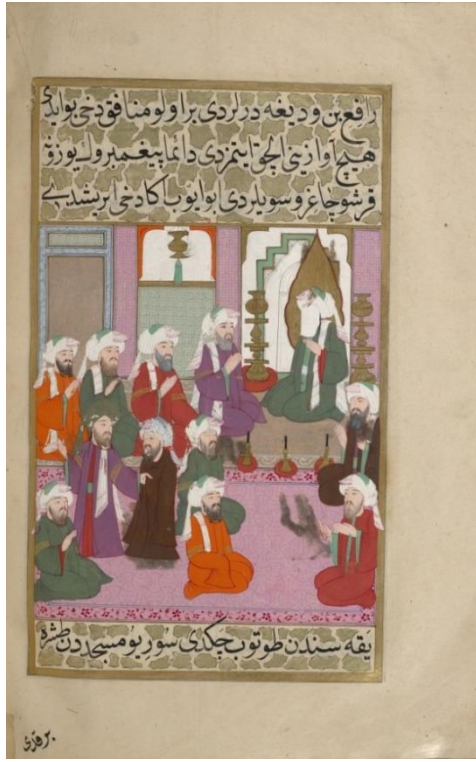 رافع بن وديعه درلردی بر اولو منافق دخی بوایدی
هیچ آوازینی الچق ایتمزدی دائما پیغمبروك یوزوڭ
قرشو چاغرو سویلردی ابو ایوب اكا دخی ایریشدی
یقه سندن طوتوب چكدی سوریو مسجددن طشره